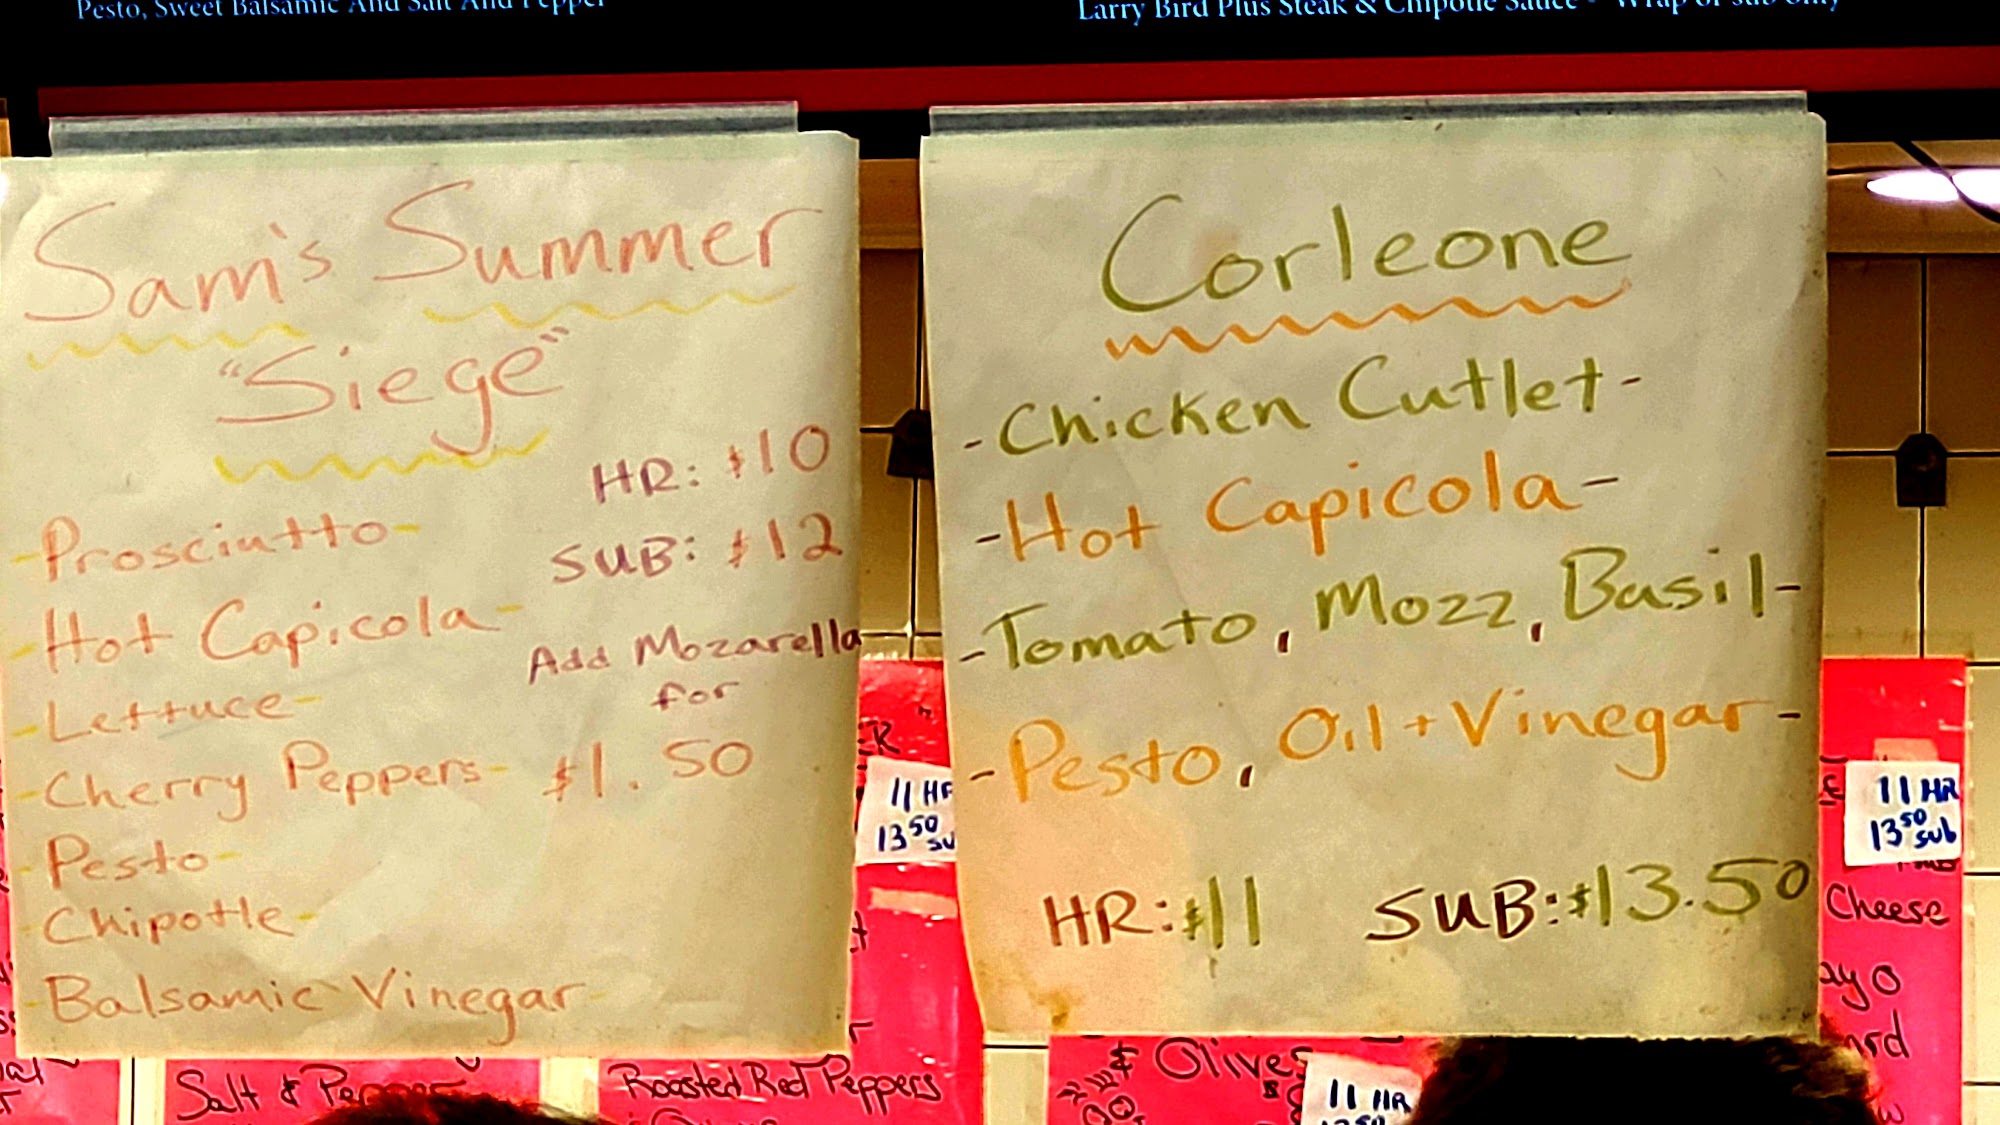 Pesto, Sweet Balsamic And Salt And Pepper
Larry Bird Plus Steak & Chipotle Sauce - Wrap or sub only
Sam's Summer
"Siege"
HR: $10
SUB: $12
Add Mozarella
for
$1.50
-Prosciutto-
-Hot Capicola-
-Lettuce-
-Cherry Peppers-
-Pesto-
-Chipotle-
-Balsamic Vinegar-
Corleone
-Chicken Cutlet-
-Hot Capicola-
-Tomato, Mozz, Basil-
-Pesto, Oil + Vinegar-
HR: $11 SUB: $13.50
11 HR
13.50 su
11 HR
13.50 sub
Cheese
Salt & Pepper
Roasted Red Peppers
Olives
11 HR